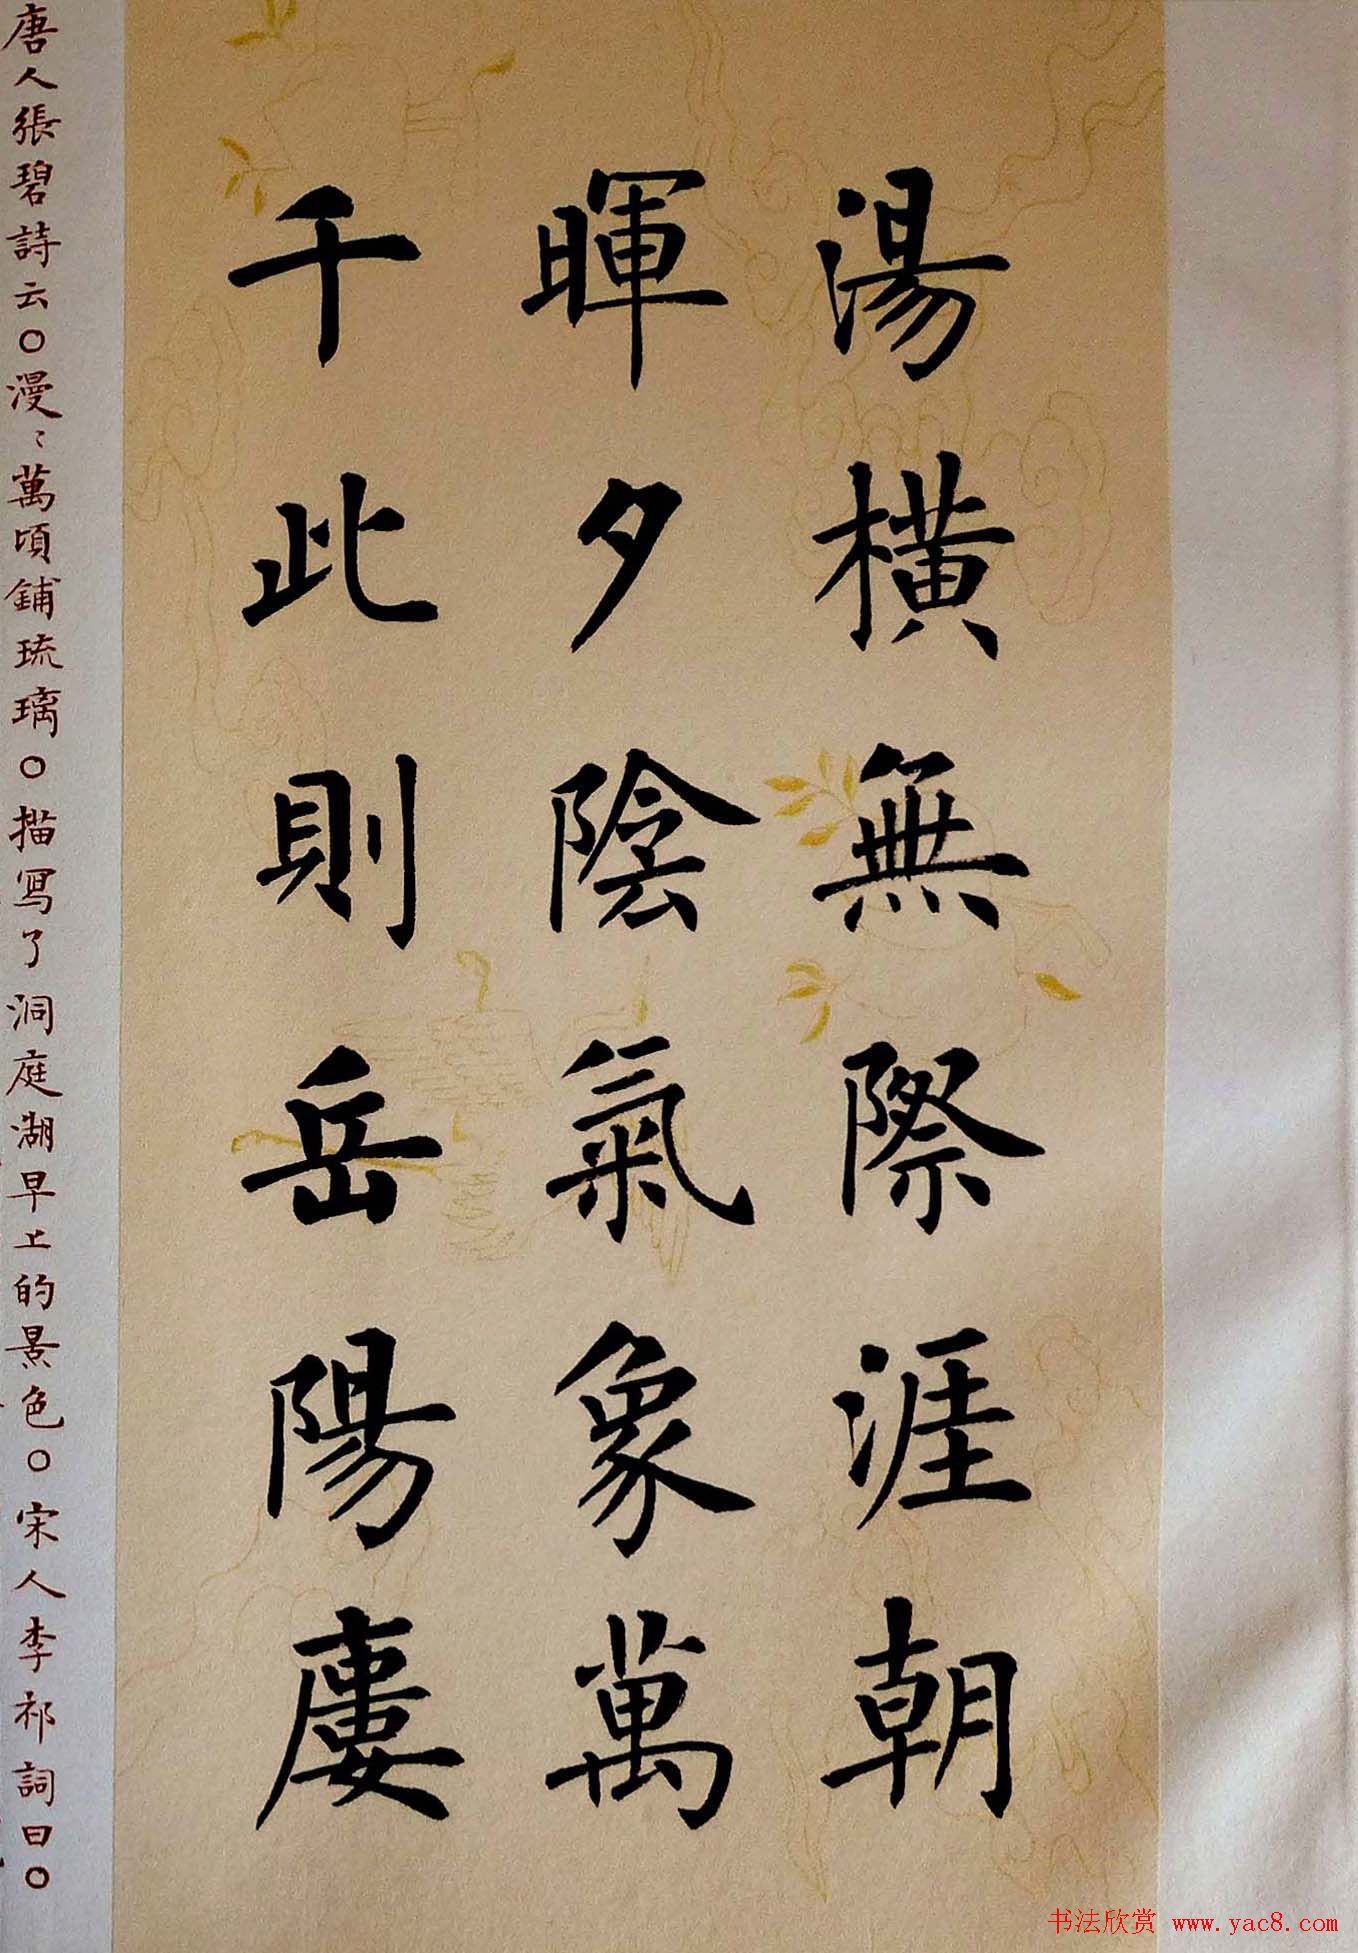 湯橫無際涯朝
暉夕陰氣象萬
千此則岳陽廔
唐人張碧詩云〇漫〻萬頃鋪琉璃〇描寫了洞庭湖早上的景色〇宋人李祁詞曰〇
书法欣赏 www.yac8.com